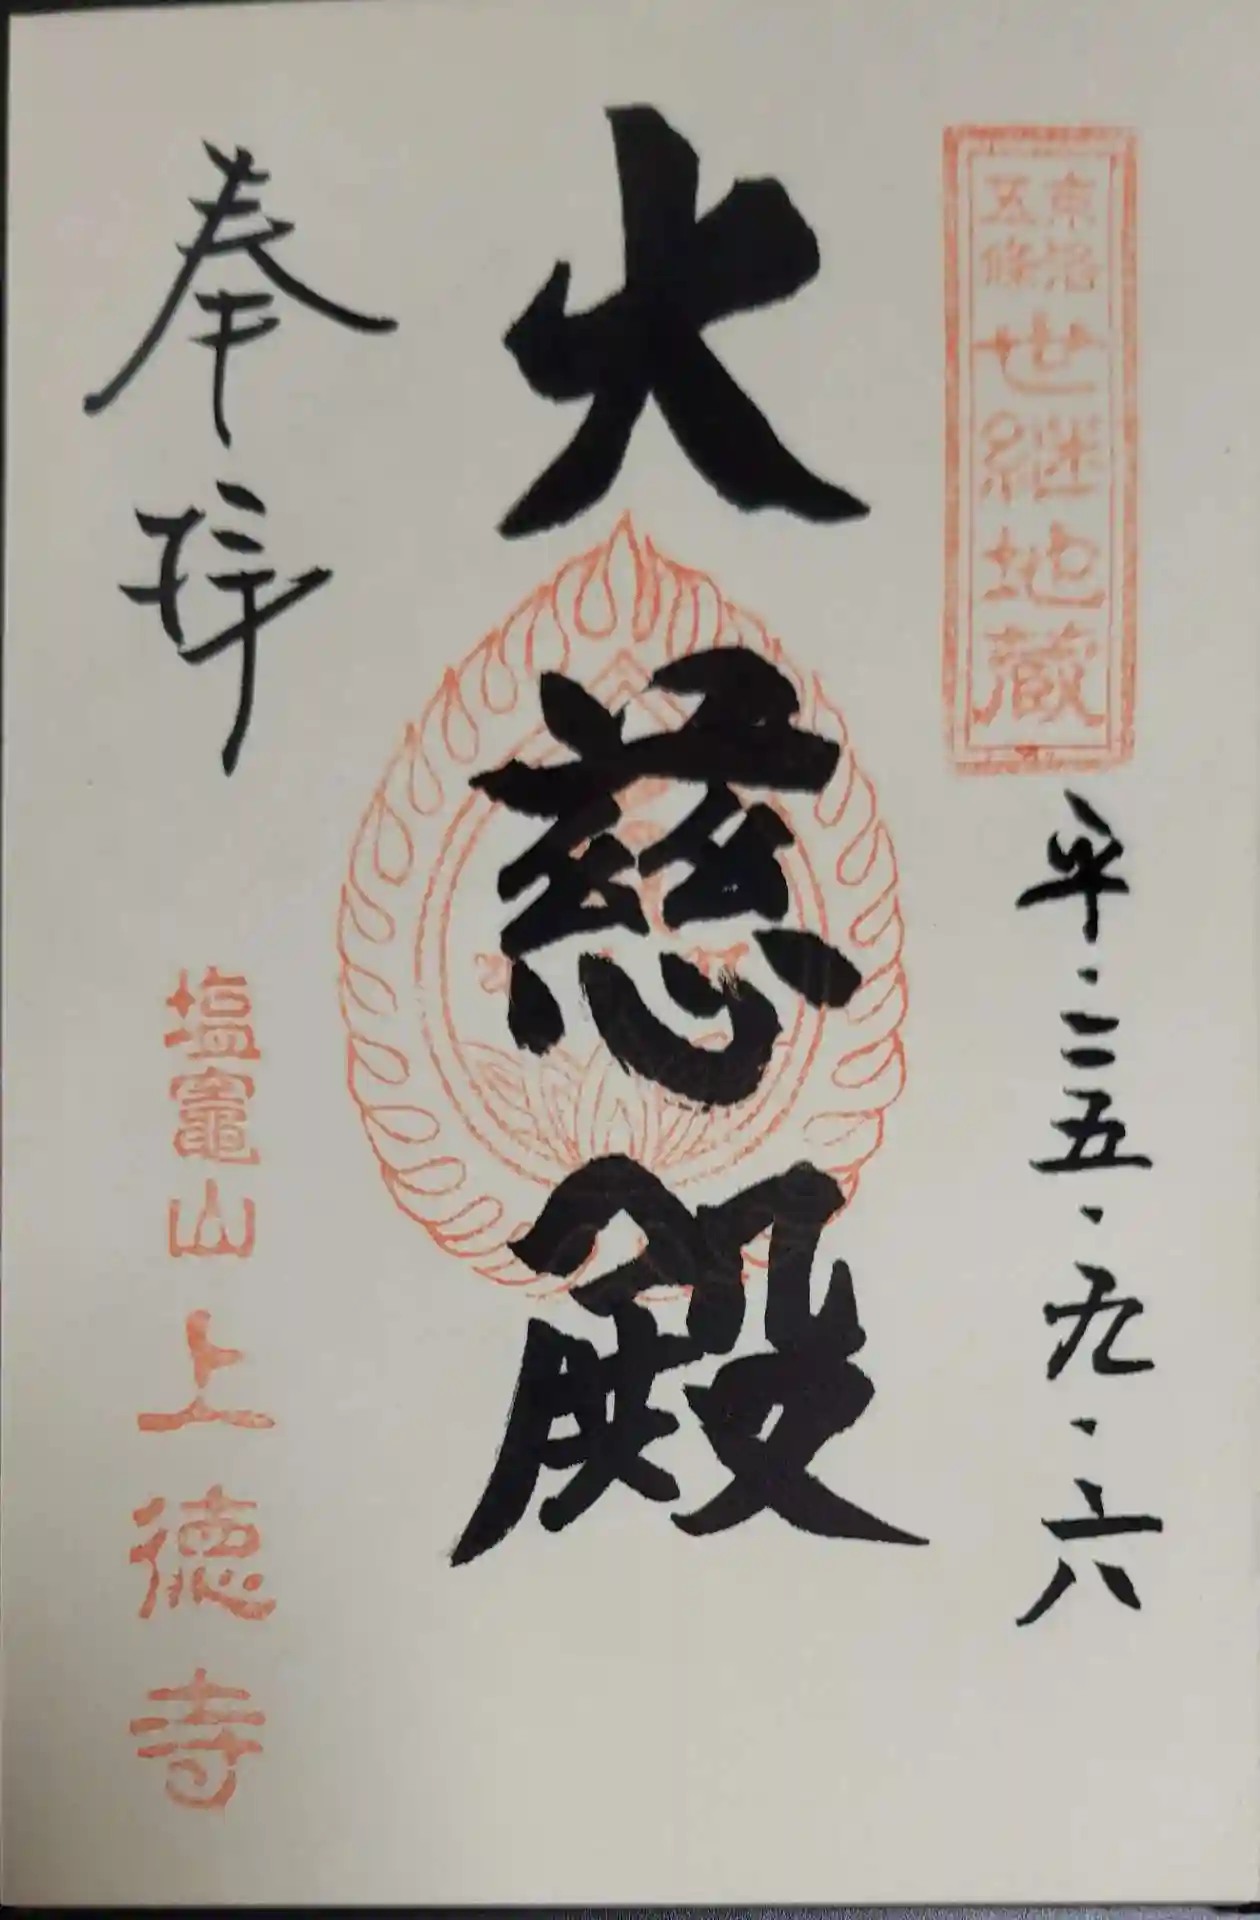 京洛
五條
世継地蔵
平・二五・九・六
大慈殿
奉拝
塩竈山
上徳寺